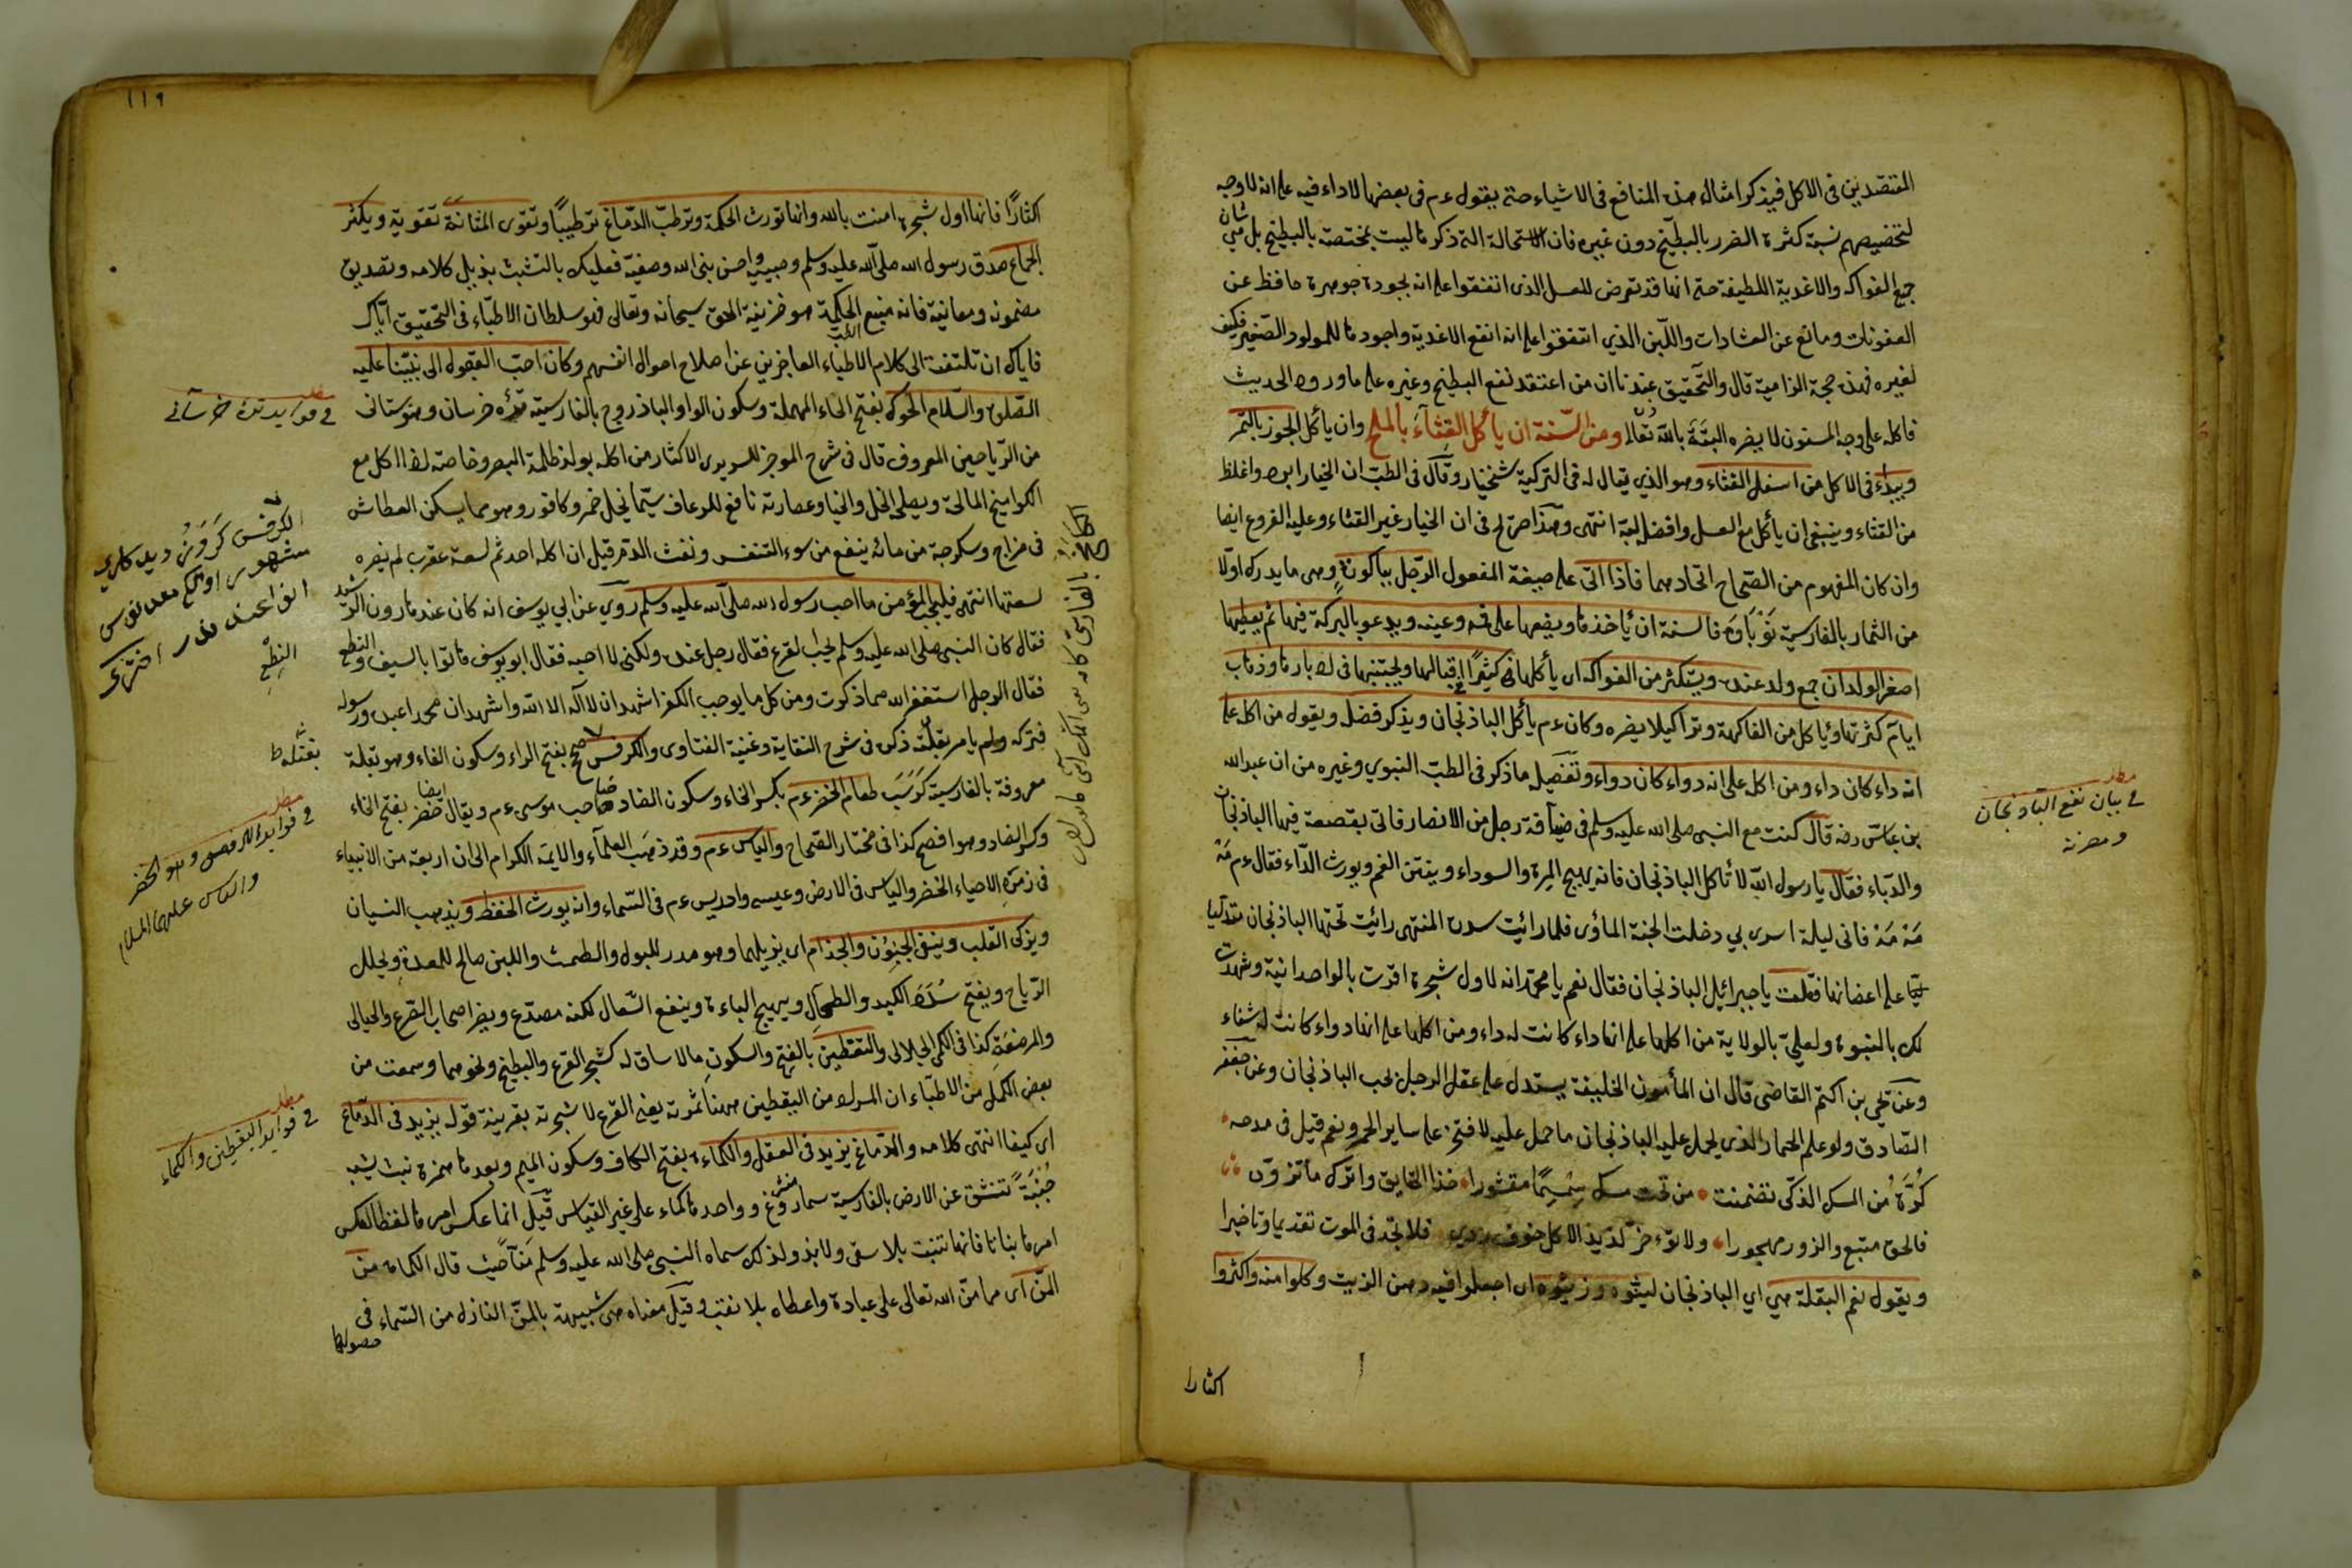 المقتصدين فى الاكل فيذكر امثال هذه المنافع فى الاشياء حتى يقول ءم فى بعضها لاداء فيه على انه لا وجه
لتخصيصهم نسبة كثرة الضرر بالبطيخ دون غيره فان الاستحالة التى ذكروها ليست بمختصة بالبطيخ بل هى شان
جميع الفواكه والاغدية اللطيفة حتى انها قد تعرض للعسل الذى اتفقوا على انه بجودة جوهره حافظ عن
العفونات ومانع عن الفسادات واللبن الذي اتفقوا على انه انفع الاغدية واجودها للمولود الصغير فكيف
لغيره فهذه حجة الزامية قال والتحقيق عندنا ان من اعتقد نفع البطيخ وغيره على ما ورد به الحديث
فاكله على وجه المسنون لا يضره البتة بالله تعالى ومن السنة ان يأكل القثاء بالملح وان يأكل الجوز بالتمر
ويبداء فى الاكل من اسفل القثاء وهو الذي يقال له فى التركية شنخيار وقال فى الطب ان الخيار ابرد واغلظ
من القثاء وينبغى ان يأكل مع العسل وافضل لبه انتهى وهذا صرّح فى ان الخيار غير القثاء وعليه الفروع ايضا
وان كان المفهوم من الصحاح اتحادهما فاذا اتى على صيغة المفعول الرجل بباكورة وهى ما يدرك اولا
من الثمار بالفارسية نوباوه فالسنة ان يأخذها ويضعها على فيه وعينه ويدعو بالبركة فيها ثم يعطيها
اصغر الولدان جمع ولد عنده ويستكثر من الفواكه اى يأكلها كثيرا فى اقبالها ويجتنبها فى ادبارها وذهاب
ايام كثرتها ويأكل من الفاكهة وترا كيلا يضره وكان ءم يأكل الباذنجان ويذكر فضله ويقول من اكل على
انه داء كان داء ومن اكل على انه دواء كان دواء وتفصيل ما ذكر فى الطب النبوي وغيره من ان عبد الله
بن عباس رضه قال كنت مع النبى صلى الله عليه وسلم فى ضيافة رجل من الانصار فاتى بقصعة فيها الباذنجان
والدباء فقال يا رسول الله لا تأكل الباذنجان فانه يهيج المرة والسوداء ويفتن الفم ويورث الداء فقال ءم مه
مه مه فانى ليلة اسرى بي دخلت الجنة المأوى فلما رائيت سدرة المنتهى رائيت تحتها الباذنجان متدليا
على اغصانها فقلت يا جبرائيل الباذنجان فقال نعم يا محمد انه لاول شجرة اقرت بالواحدانية وشهدت
لك بالنبوة ولعلي بالولاية من اكلها على انها داء كانت له داء ومن اكلها على انها دواء كانت له شفاء
وعن يحي بن اكثم القاضى قال ان المأمون الخليفة يستدل على عقل الرجل بحب الباذنجان وعن جعفر
الصادق ولو علم الحمار الذى يحمل عليه الباذنجان ما حمل عليه لافتخر على ساير الحمر ونعم قيل فى مدحه
كرة من المسك الذكى تضمنت من تحت مسك سمسما مقشورا خذ الحقايق واترك
فالحق متبع والزور مهجورا ولا تؤخر لذيذ الاكل خوف ردي فلا تجد فى الموت تقديما وتاخيرا
ويقول نعم البقلة هي اي الباذنجان لينوه وزيتوه اى اجعلوا فيه دهن الزيت وكلوا منه واكثروا
اكثارا
مطلب
فى بيان نفع الباذنجان
ومضرته
١١٩
اكثارا فانها اول شجرة امنت بالله وانها تورث الحكمة وترطب الدماغ ترطيبا وتقوى المثانة تقوية ويكثر
الجماع صدق رسول الله صلى الله عليه وسلم وحبيبه واحسن بنى الله وصفيه فعليك بالتشبث بذيل كلامه وتصديق
مضمونه ومعانيه فانه منبع الحكمة هو خزينة الحق سبحانه وتعالى فهو سلطان الاطباء فى التحقيق اياك
فاياك ان تلتفت الى كلام الاطباء العاجزين عن اصلاح احوال انفسهم وكان احب البقول الى نبينا عليه
الصلوة والسلام الحوك بفتح الحاء المهملة وسكون الواو الباذروج بالفارسية تره خرسان وهو ستانى
من الرياحين المعروف قال فى شرح الموجز للسويدى الاكثار من اكله يولد ظلمة البصر وخاصته لهذا اكل مع
الكواميخ المالحة ويصلحه الخل والخيار وعصارته نافع للرعاف سيما بخل خمر وكافور وهو مما يسكن العطاش
فى مزاج وسكرجة من مائه ينفع من سوء التنفس ونفث الدم قيل ان اكله احد ثم لسعة عقرب لم يضره
لسعتها انتهى فليحب المؤمن ما احب رسول الله صلى الله عليه وسلم روي عن ابي يوسف انه كان عند هارون الرشيد
فقال كان النبى صلى الله عليه وسلم يحب القرع فقال رجل عنده ولكنى لا احبه فقال ابو يوسف هاتوا بالسيف والنطع
فقال الرجل استغفر الله مما ذكرت ومن كل ما يوجب الكفر اشهد ان لا اله الا الله واشهد ان محمدا عبده ورسوله
فتركه ولم يأمر بقتله ذكره فى شرح النقاية وغنية الفتاوى والكرفس صح بفتح الراء وسكون الفاء وهو بقلة
معروفة بالفارسية كرسب طعام الخضر ءم بكسر الخاء وسكون الضاد صاحب موسى ءم ويقال خضر ايضا بفتح الخاء
وكسر الضاد وهو افصح كذا فى مختار الصحاح والياس ءم وقد ذهب العلماء والايمة الكرام الى ان اربعة من الانبياء
فى زمرة الاحياء الخضر والياس فى الارض وعيسى وادريس ءم فى السماء وانه يورث الحفظ ويذهب النسيان
ويزكى القلب وينفى الجنون والجذام اى يزيلهما وهو مدر للبول والطمث واللبن صالح للمعدة ويحلل
الرياح ويفتح سدد الكبد والطحال ويهيج الباءة وينفع السعال لكنه مصدع ويضر اصحاب الصرع والحبالى
والمرضعة كذا فى الكمى الجلالى واليقطين بالفتح والسكون مالا ساق له كشجر القرع والبطيخ ونحوهما وسمعت من
بعض الكمل من الاطباء ان المراد من اليقطين ههنا ثمرته يعنى القرع لا شجرته بقرينة قوله يزيد فى الدماغ
اى كيفا انتهى كلامه والدماغ يزيد فى العقل والكماءة بفتح الكاف وسكون الميم وبعدها همزة نبت يشبه
تنشق عن الارض بالفارسية سماروغ وواحدها كماء على غير القياس قيل انما عكس امرها لفظا لعكس
امرها بناتا فانها تنبت بلا سقى ولا بذر ولذلك سماه النبى صلى الله عليه وسلم منا حيث قال الكماة من
المن اى مما من الله تعالى على عباده واعطاه بلا تعب وقيل معناه هى شبيهة بالمن النازل من السماء فى
حصولها
مطلب
فى فوايد تره خرسانى
الكرفس
مشهور
النطع
بقتله ط
مطلب
فى فوايد الكرفس وهو الخضر
والياس عليهما السلام
مطلب
فى فوايد اليقطين والكماء